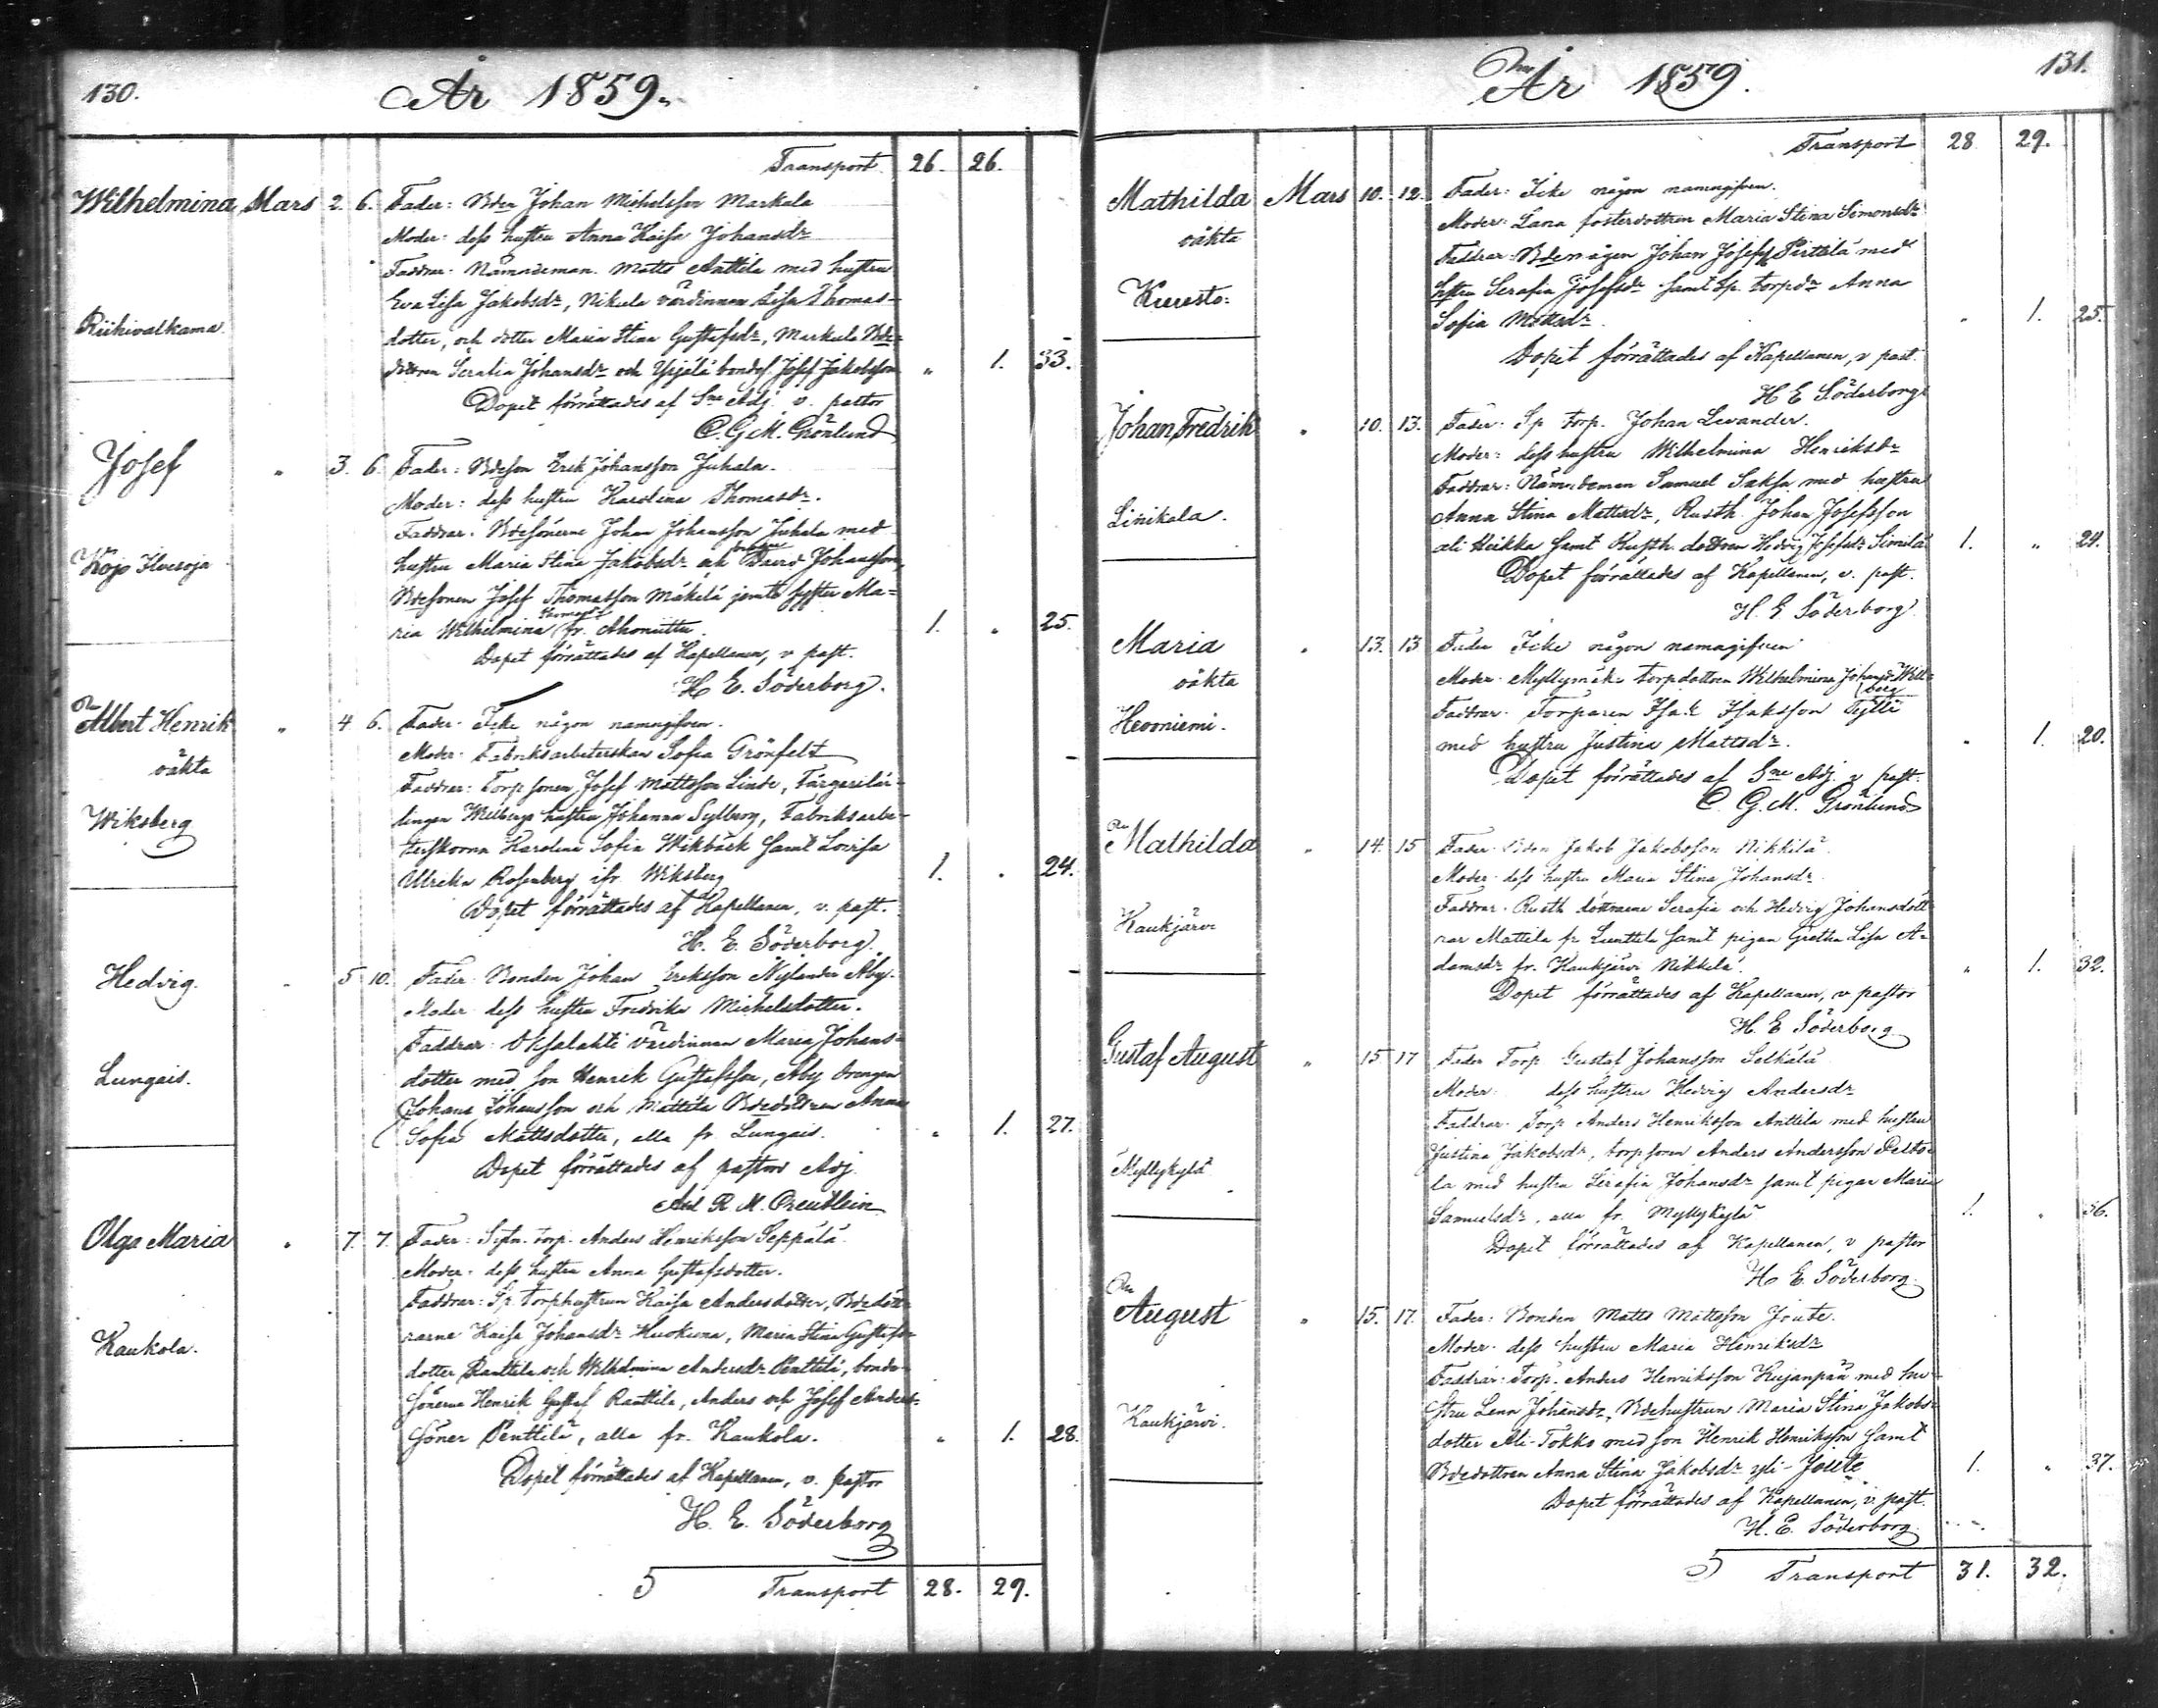 130.
År 1859.
Transport 26. 26.
Wilhelmina Mars 2. 6. Fader: Bden Johan Michelsson Markula
Moder: dess hustru Anna Kaisa Johansdr
Faddrar: Nämndeman Matts Anttila med hustru
Eva Lisa Jakobsdr, Nikula värdinnan Lisa Thomas-
Riihivalkama
dotter, och dotter Maria Stina Gustafsdr, Markula Bde-
dottren Serafia Johansdr och Yrjälä bondes. Josef Jakobsson " 1. 33.
Dopet förrättades af Sne Adj. v. pastor
C. G. M. Grönlund
Josef " 3. 6. Fader: Bdeson Erik Johansson Juhala.
Moder: dess hustru Karolina Thomasdr.
Faddrar: Bdesönerne Johan Johansson Juhala med
Kojo
hustru Maria Stina Jakobsdr och David Johansson,
Bdesonen Josef Thomasson Mäkelä jemte syster Ma-
ria Wilhelmina Thomasdr fr. Ahoniittu. 1. " 25.
Dopet förrättades af Kapellanen, v. past.
H. E. Söderborg.
Albert Henrik " 4. 6. Fader: Icke någon namngifven.
oäkta
Moder: Fabriksarbeterskan Sofia Grönfelt
Faddrar: Torpsonen Josef Mattsson Linde, Färgerilär-
Wiksberg
lingen Wilbergs hustru Johanna Sylberg, Fabriksarbe-
terskorna Karolina Sofia Wikbäck samt Lovisa
Ullrika Rosenberg ifr. Wiksberg 1. " 24.
Dopet förrättades af Kapellanen, v. past.
H. E. Söderborg.
Hedvig. " 5 10. Fader: Bonden Johan Eriksson Nylander Åby.
Moder: dess hustru Fredrika Michelsdotter.
Faddrar: Oksalahti värdinnan Maria Johans-
Lungais.
dotter med son Henrik Gustafsson, Åby drengen
Johan Johansson och Mattila Bdedottren Anna
Sofia Mattsdotter, alla fr. Lungais. " 1. 27.
Dopet förrättades af pastors Adj.
Axl R. M.
Olga Maria " 7. 7. Fader: Sytn. torp. Anders Henriksson Seppälä.
Moder: dess hustru Anna Gustafsdotter.
Faddrar: Sp. torphustrun Kaisa Andersdotter, Bdedött-
Kaukola.
rarne Kaisa Johansdr Huokuna, Maria Stina Gustafs-
dotter Ranttila och Wilhelmina Andersdr Penttilä, bonde-
sönerna Henrik Gustaf Ranttila, Anders och Josef Anders-
söner Penttilä, alla fr. Kaukola. " 1. 28.
Dopet förrättades af Kapellanen, v. pastor
H. E. Söderborg
5 Transport 28. 29.
131.
År 1859.
Transport 28 29.
Mathilda Mars 10. 12. Fader: Icke någon namngifven.
oäkta
Moder: Lana fosterdottren Maria Stina Simonsdr
Faddrar: Bdemågen Johan Josefss. Pirttilä med
Kuusto:
hstru Serafia Josefsdr samt Sp. torpdr Anna
Sofia Mattsdr. " 1. 25.
Dopet förrättades af Kapellanen, v past.
H E Söderborg
Johan Fredrik " 10. 13. Fader: Sp torp. Johan Levander.
Moder: dess hustru Wilhelmina Henriksdr
Faddrar: Nämndeman Samuel Saksa med hustru
Linikala.
Anna Stina Mattsdr, Rusth. Johan Josefsson
ali Heikka samt Rusth. dottren Hedvig Josefsdr Simila 1. " 24.
Dopet förrättades af Kapellanen, v. past.
H. E Söderborg.
Maria " 13. 13 Fader Icke någon namngifven
oäkta
Moder: Myllymäki torpdottren Wilhelmina Johansdr Will-
berg
Hevoniemi.
Faddrar: Torparen Isak Isaksson Tytti
med hustru Justina Mattsdr. " 1. 20.
Dopet förrättades af Sne Adj. v past.
C. G. M. Grönlund
Mathilda " 14. 15 Fader: Bden Jakob Jakobsson Nikkilä
Moder: dess hustru Maria Stina Johansdr
Faddrar: Rusth döttrarne Serafia och Hedvig Johansdött-
Kaukjärvi
rar Mattila fr Lunttila samt pigan Gretha Lisa A-
damsdr fr. Kaukjärvi Nikkilä. " 1. 32.
Dopet förrättades af Kapellanen, v pastor
H. E Söderborg
Gustaf August " 15 17 Fader Torp Gustaf Johansson
Moder: dess hustru Hedvig Andersdr
Faddrar: Torp Anders Henriksson Anttila med hustru
Justina Jakobsdr, torpsonen Anders Andersson Pelto-
Myllykylä
la med hustru Serafia Johansdr samt pigan Maria
Samuelsdr, alla fr. Myllykylä 1. " 36.
Dopet förrättades af Kapellanen, v pastor
H. E. Söderborg.
August " 15. 17. Fader: Bonden Matts Mattsson Joute.
Moder: dess hustru Maria Henriksdr
Faddrar: Torp. Anders Henriksson Kujanpää med hu-
Kaukjärvi.
stru Lena Johansdr, Bdehustrun Maria Stina Jakobs-
dotter Ali-Tokko med son Henrik Henriksson samt
Bdedottren Anna Stina Jakobsdr yli-Joute 1. " 37.
Dopet förrättades af Kapellanen, v. past.
H. E. Söderborg.
5 Transport 31. 32.